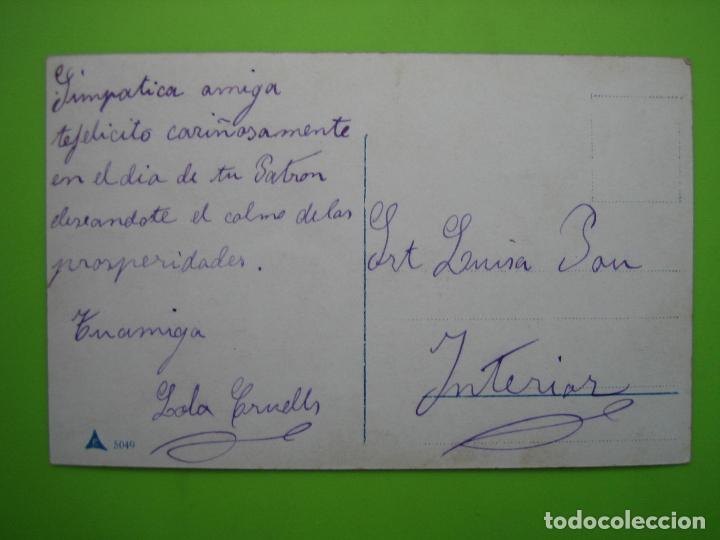 Simpatica amiga
tefelicito cariñosamente
en el dia de tu Patron
deseandote el colmo delas
prosperidades.
Tuamiga
Lola Cruells
5049
Srt Luisa Pou
Interior
todocoleccion.net